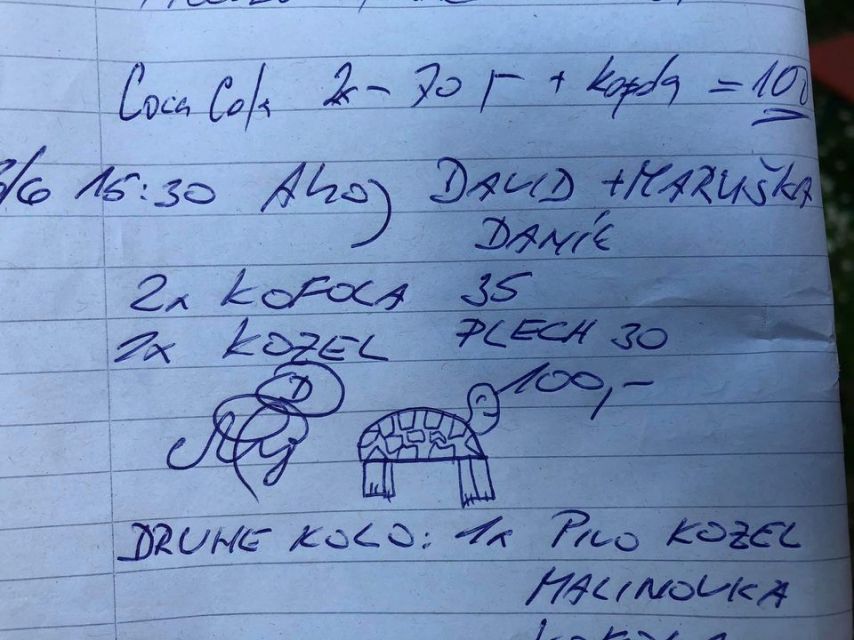 Coca Cola 2x - 70,- + = 100
/6 15:30 Ahoj DAVID + MARUŠKA
DANÍE
2x KOFOLA 35
1x KOZEL PLECH 30
100,-
D
DRUHE KOLO: 1x PIVO KOZEL
MALINOVKA